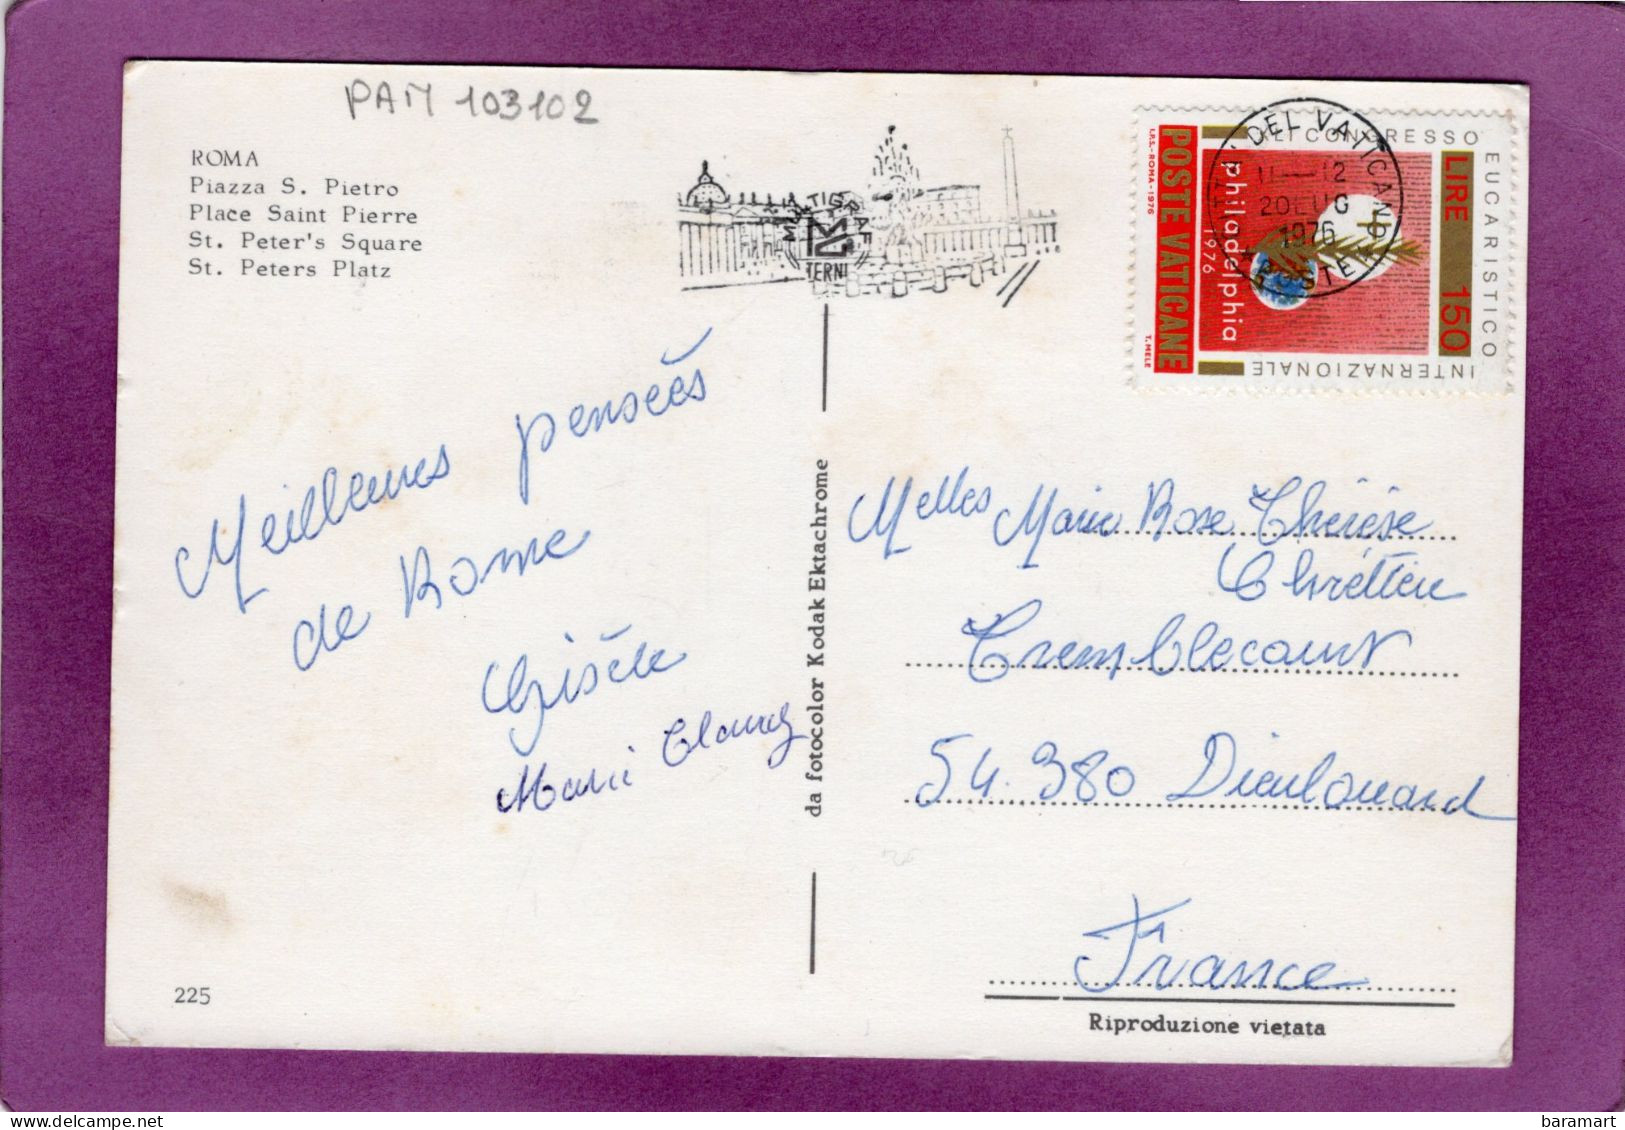 PAM 103102
ROMA
Piazza S. Pietro
Place Saint Pierre
St. Peter's Square
St. Peters Platz
MULTIGRAF
TERNI
DEL VATICANO
11—12
20 LUG
1976
POSTE
XLI CONGRESSO
EUCARISTICO
INTERNAZIONALE
LIRE 150
philadelphia
1976
POSTE VATICANE
I.P.S.-ROMA-1976
T. MELE
Meilleures pensées
de Rome
Gisèle
Marie
da fotocolor Kodak Ektachrome
Melles Marie Rose Thérèse
Chrétien
Tremblecourt
54.380 Dieulouard
France
225
Riproduzione vietata
delcampe.net
baramart